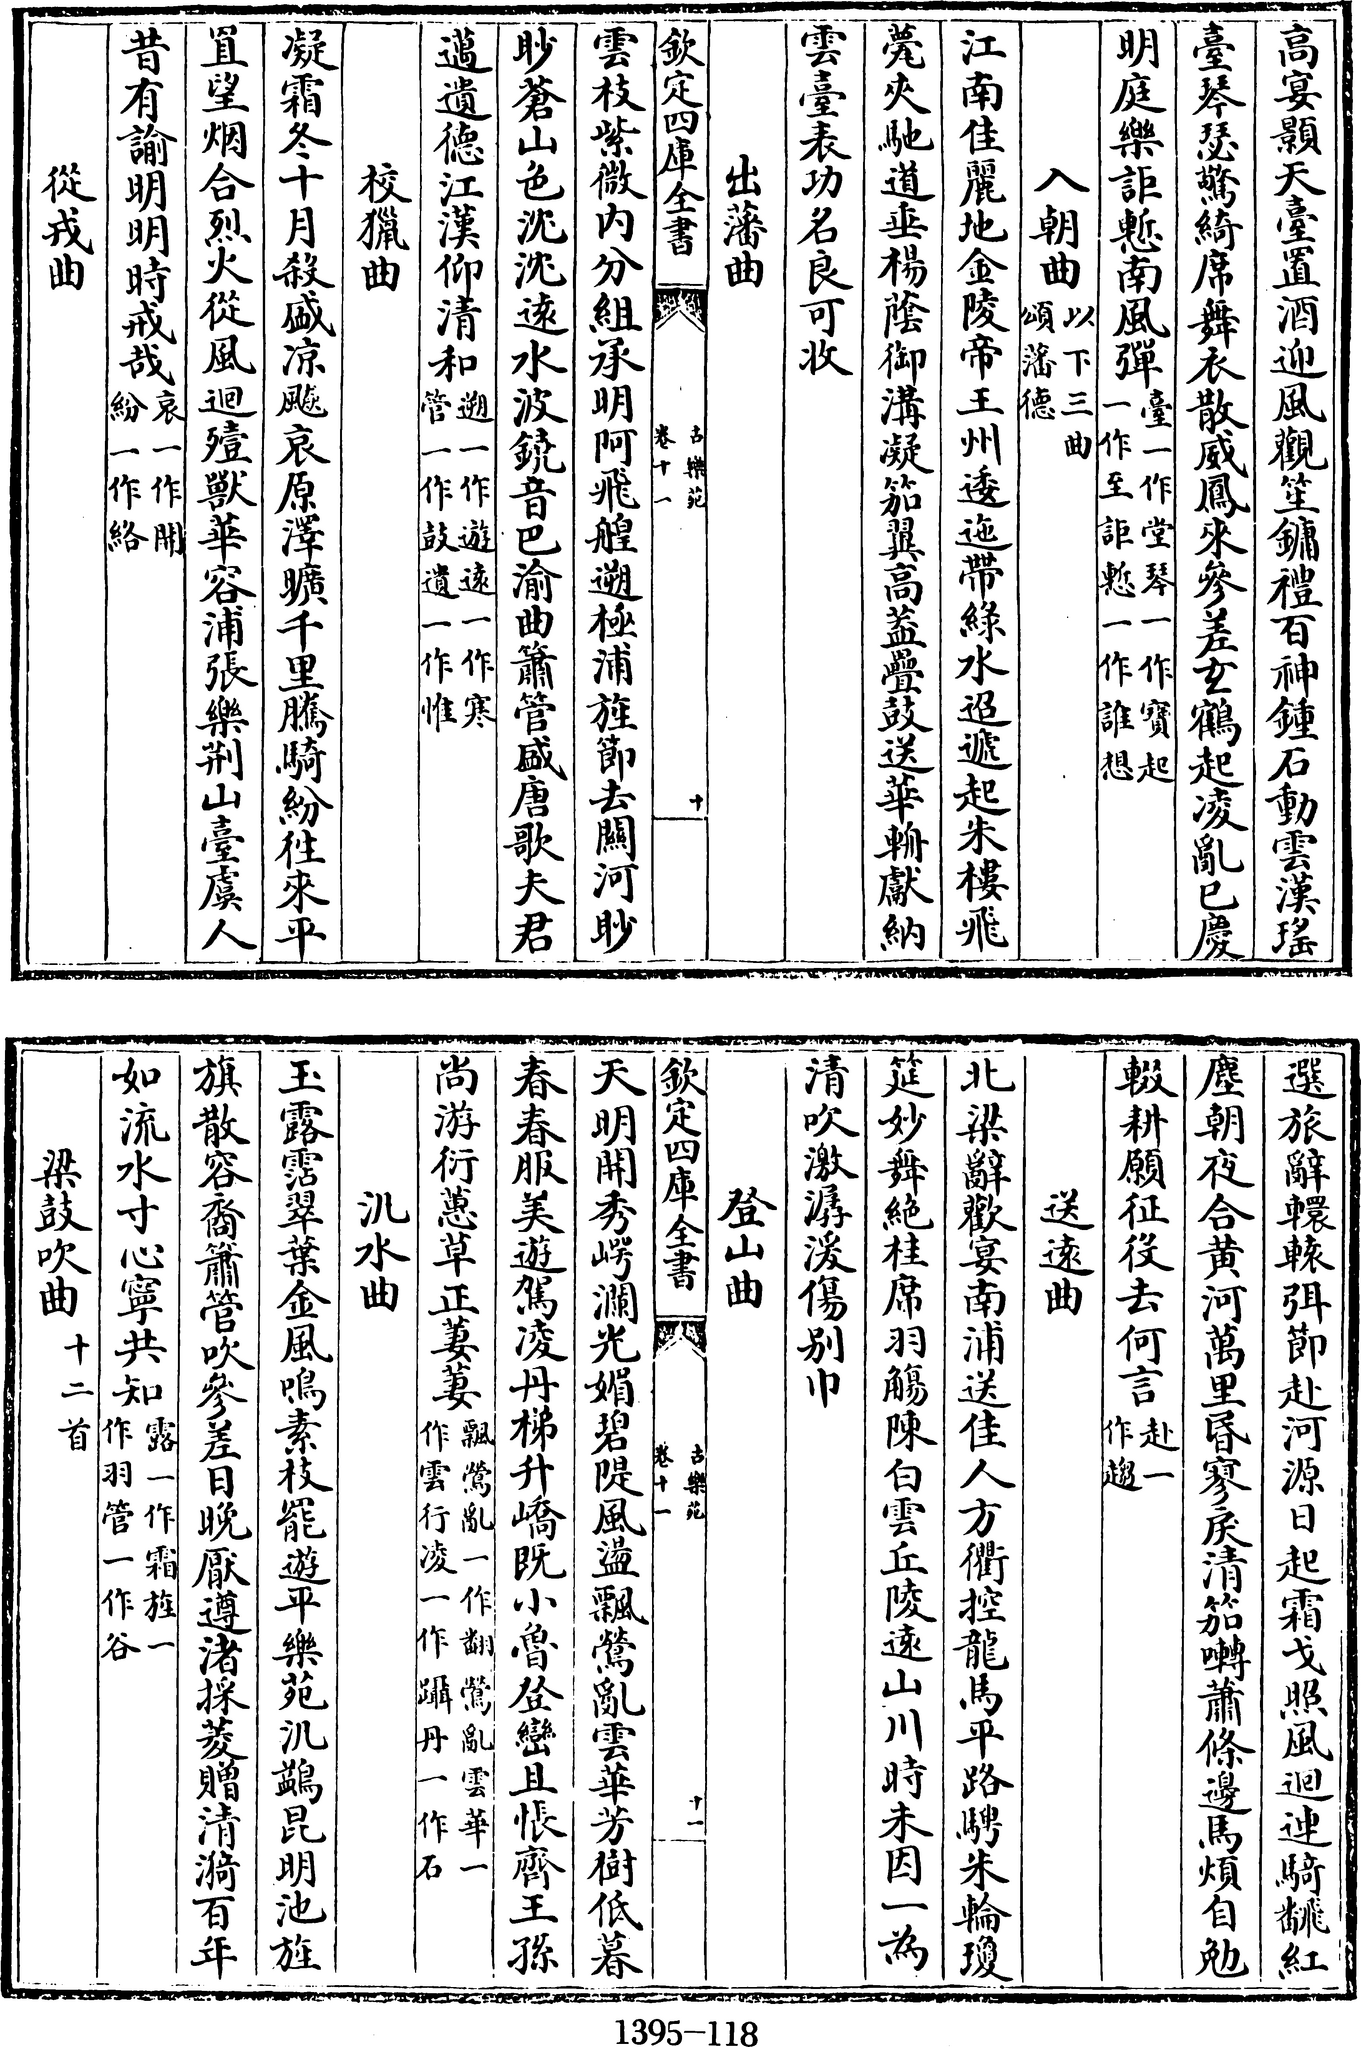 高宴顥天臺置酒迎風觀笙鏞禮百神鍾石動雲漢瑤
臺琴瑟驚綺席舞衣散威鳳來參差玄鶴起凌亂已慶
明庭樂詎慙南風彈臺一作堂琴一作寳起
一作至詎慙一作誰想
入朝曲以下三曲
頌藩德
江南佳麗地金陵帝王州逶迤帶綠水迢遞起朱樓飛
甍夾馳道垂楊蔭御溝凝笳翼高蓋疊鼓送華輈獻納
雲臺表功名良可收
出藩曲
欽定四庫全書
古樂苑
卷十一
十
雲枝紫微内分組承明阿飛艎遡極浦旌節去關河眇
眇蒼山色沈沈逺水波鐃音巴渝曲簫管盛唐歌夫君
邁遺德江漢仰清和遡一作遊逺一作寒
管一作鼓遺一作惟
校獵曲
凝霜冬十月殺盛凉飈哀原澤曠千里騰騎紛徃來平
罝望烟合烈火從風迴殪獸華容浦張樂荆山臺虞人
昔有諭明明時戒哉哀一作開
紛一作絡
從戎曲
選旅辭轘轅弭節赴河源日起霜戈照風迴連騎飜紅
塵朝夜合黄河萬里昏寥戾清笳囀蕭條邊馬煩自勉
輟耕願征役去何言赴一
作趨
送逺曲
北梁辭歡宴南浦送佳人方衢控龍馬平路騁朱輪瓊
筵妙舞絶桂席羽觴陳白雲丘陵逺山川時未因一為
清吹激潺湲傷别巾
登山曲
欽定四庫全書
古樂苑
卷十一
十一
天明開秀崿瀾光媚碧隄風盪飄鶯亂雲華芳樹低暮
春春服美遊駕凌丹梯升嶠既小魯登巒且悵齊王孫
尚游衍蕙草正萋萋飄鶯亂一作翻鶯亂雲華一
作雲行凌一作躡丹一作石
汎水曲
玉露霑翠葉金風鳴素枝罷遊平樂苑汎鷁昆明池旌
旗散容裔簫管吹參差日晚厭遵渚採菱贈清漪百年
如流水寸心寧共知露一作霜旌一
作羽管一作谷
梁鼓吹曲十二首
1395-118